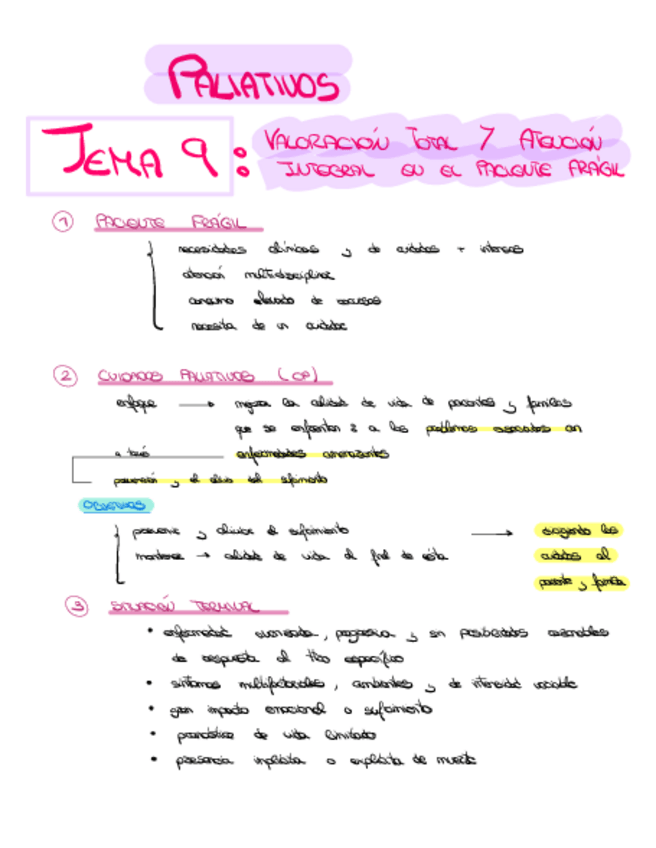 PALIATIVOS
TEMA 9: VALORACIÓN TOTAL Y ATENCIÓN
INTEGRAL EN EL PACIENTE FRÁGIL
1 PACIENTE FRÁGIL
necesidades clínicas y de cuidados + intensos
atención multidisciplinar
consumo elevado de recursos
necesita de un cuidador
2 CUIDADOS PALIATIVOS (CP)
enfoque → mejora la calidad de vida de pacientes y familias
que se enfrentan a los problemas asociados con
a través enfermedades amenazantes
prevención y el alivio del sufrimiento
OBJETIVOS
prevenir y aliviar el sufrimiento →
mantener → calidad de vida al final de ésta
cuidados al
paciente y familia
3 SITUACIÓN TERMINAL
• enfermedad avanzada, progresiva y sin posibilidades razonables
de respuesta al tto específico
• síntomas multifactoriales, cambiantes y de intensidad variable
• gran impacto emocional o sufrimiento
• pronóstico de vida limitado
• presencia implícita o explícita de muerte